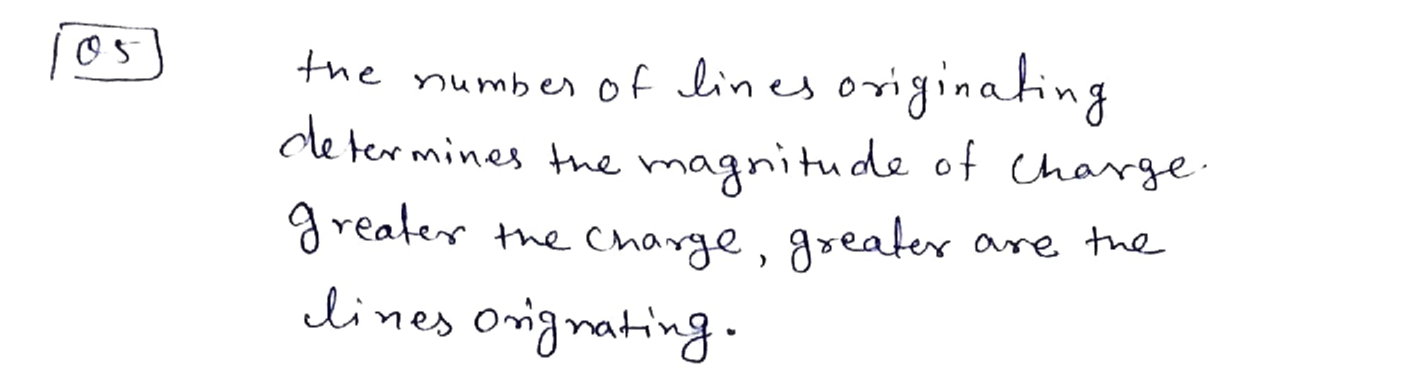 05
the number of lines originating
determines the magnitude of charge.
greater the charge, greater are the
lines orignating.